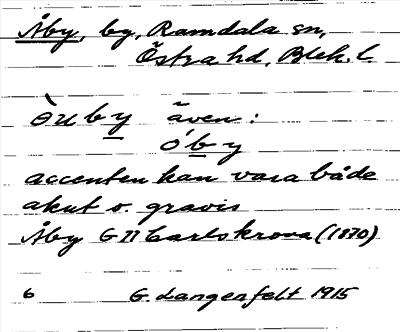 Åby, by, Ramdala sn,
Östra hd, Blek. l.
òuby även:
óby
accenten kan vara både
akut o. gravis
Åby G 77 Carlskrona (1870)
6 G. Langenfelt 1915